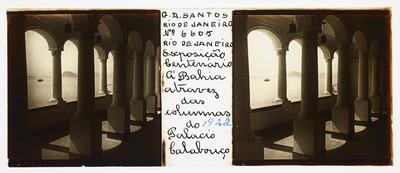 G.A. SANTOS
RIO DE JANEIRO
Nº 6605
RIO DE JANEIRO
Exposição
Centenario
A Bahia
atravez
das
columnas
do 1922
Palacio
Calabouço